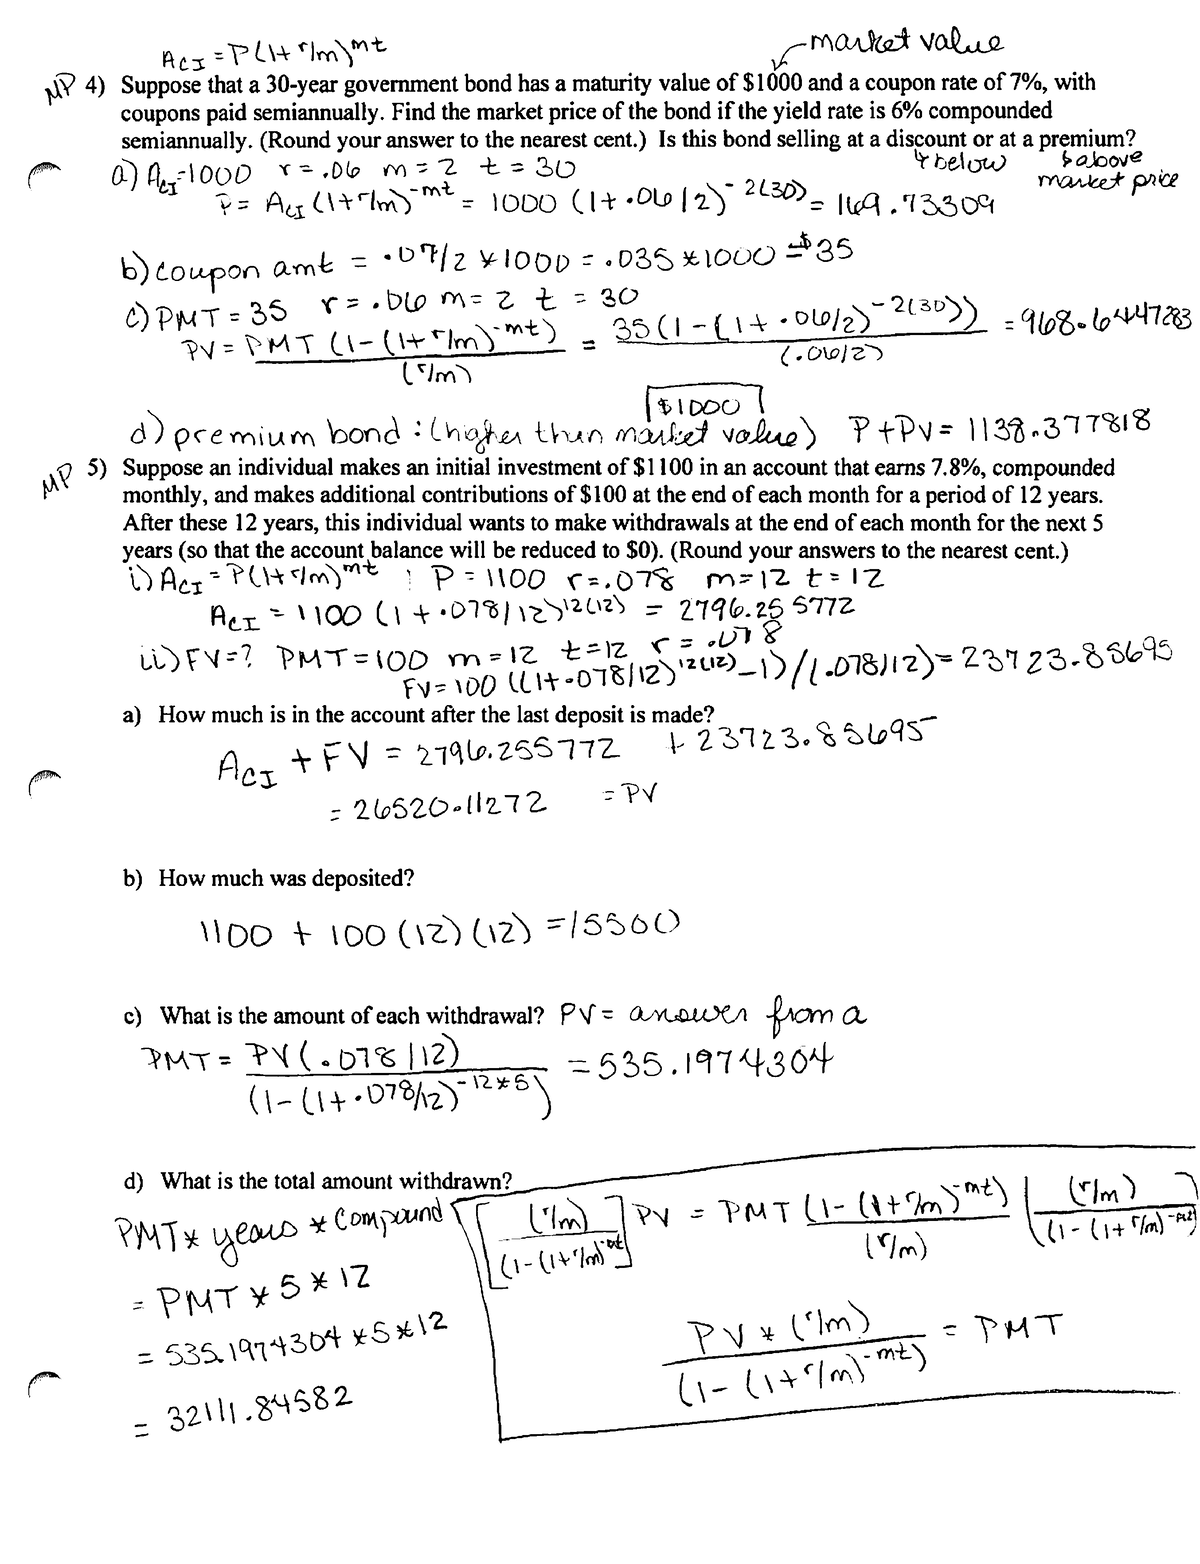 A_CI = P(1+r/m)^mt
market value
MP 4) Suppose that a 30-year government bond has a maturity value of $1000 and a coupon rate of 7%, with
coupons paid semiannually. Find the market price of the bond if the yield rate is 6% compounded
semiannually. (Round your answer to the nearest cent.) Is this bond selling at a discount or at a premium?
↳ below ↳ above
market price
a) A_CI=1000 r = .06 m = 2 t = 30
P = A_CI (1+r/m)^-mt = 1000 (1+.06/2)^-2(30) = 169.73309
b) coupon amt = .07/2 * 1000 = .035 * 1000 = $35
c) PMT = 35 r = .06 m = 2 t = 30
PV = PMT (1-(1+r/m)^-mt) / (r/m) = 35(1-(1+.06/2)^-2(30)) / (.06/2) = 968.6447283
$1000
d) premium bond : (higher than market value) P+PV = 1138.377818
MP 5) Suppose an individual makes an initial investment of $1100 in an account that earns 7.8%, compounded
monthly, and makes additional contributions of $100 at the end of each month for a period of 12 years.
After these 12 years, this individual wants to make withdrawals at the end of each month for the next 5
years (so that the account balance will be reduced to $0). (Round your answers to the nearest cent.)
i) A_CI = P(1+r/m)^mt : P = 1100 r=.078 m=12 t=12
A_CI = 1100 (1+.078/12)^12(12) = 2796.255772
ii) FV=? PMT=100 m=12 t=12 r=.078
FV=100 ((1+.078/12)^12(12) -1)/(.078/12) = 23723.85695
a) How much is in the account after the last deposit is made?
A_CI + FV = 2796.255772 + 23723.85695
= 26520.11272 = PV
b) How much was deposited?
1100 + 100 (12)(12) = 15500
c) What is the amount of each withdrawal? PV = answer from a
PMT = PV(.078/12) / (1-(1+.078/12)^-12*5) = 535.1974304
d) What is the total amount withdrawn?
PMT * years * compound
= PMT * 5 * 12
= 535.1974304 *5*12
= 32111.84582
[(r/m) / (1-(1+r/m)^-mt)] PV = PMT (1-(1+r/m)^-mt) / (r/m) ((r/m) / (1-(1+r/m)^-mt))
PV * (r/m) / (1-(1+r/m)^-mt) = PMT